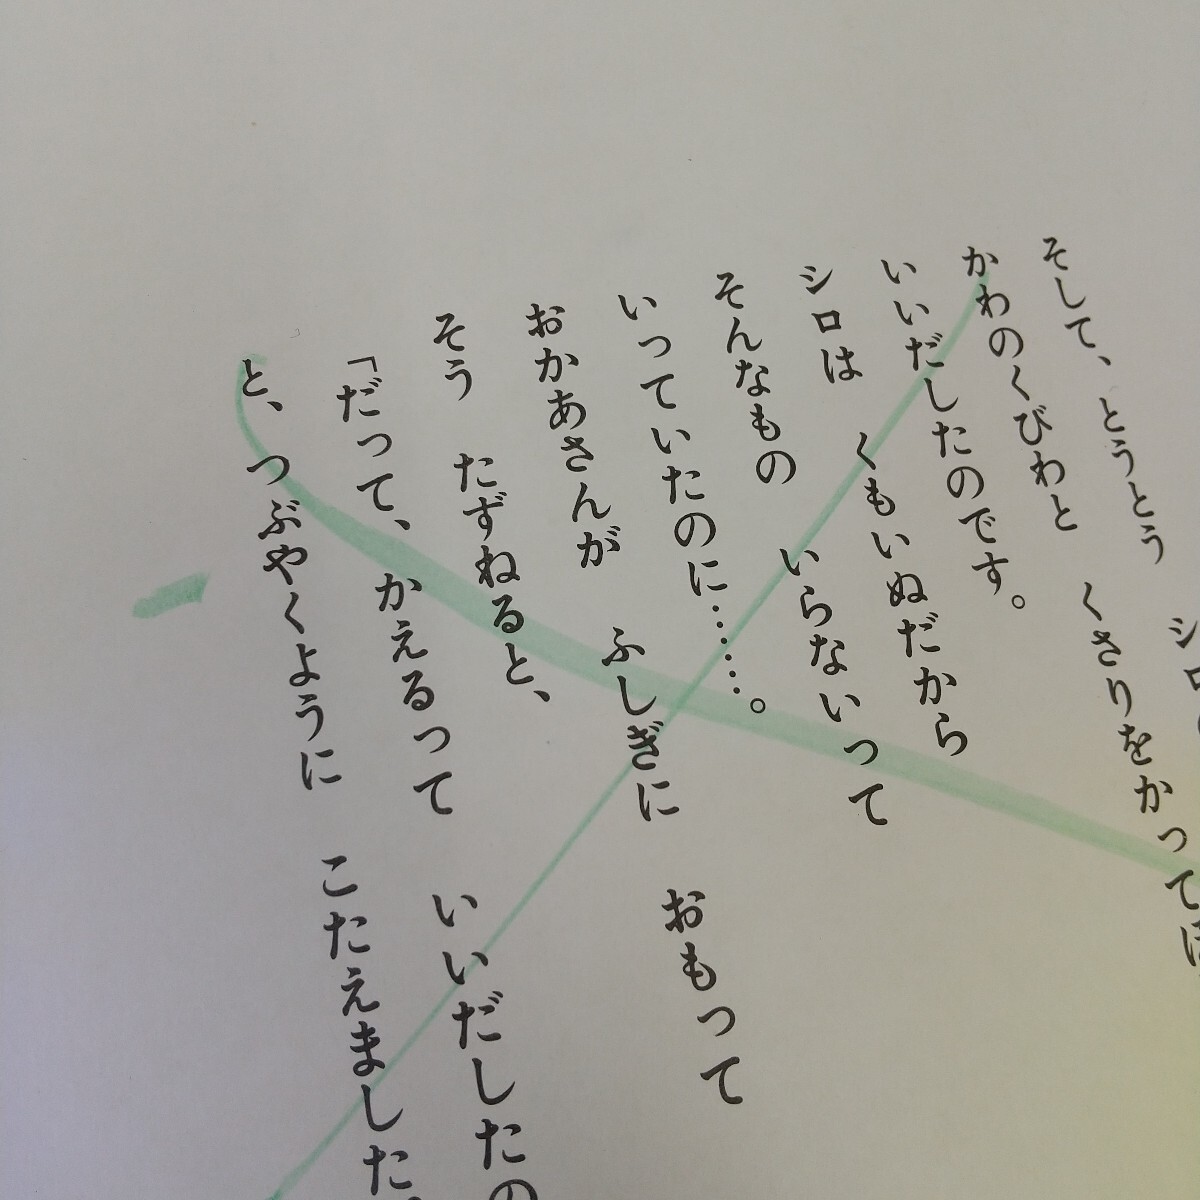 そして、とうとう　シロ
かわのくびわと　くさりをかってほ
いいだしたのです。
シロは　くもいぬだから
そんなもの　いらないって
いっていたのに……。
おかあさんが　ふしぎに　おもって
そう　たずねると、
「だって、かえるって　いいだしたの
と、つぶやくように　こたえました。